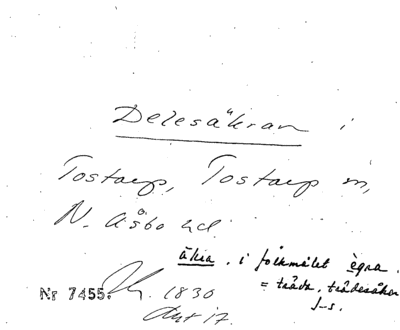 Delesäkran i
Tostarp, Tostarp sn,
N. Åsbo hd.
äkra. i folkmålet ègra.
= träda, trädesåker
J-s.
Nr 7455. 1830
Akt 17.